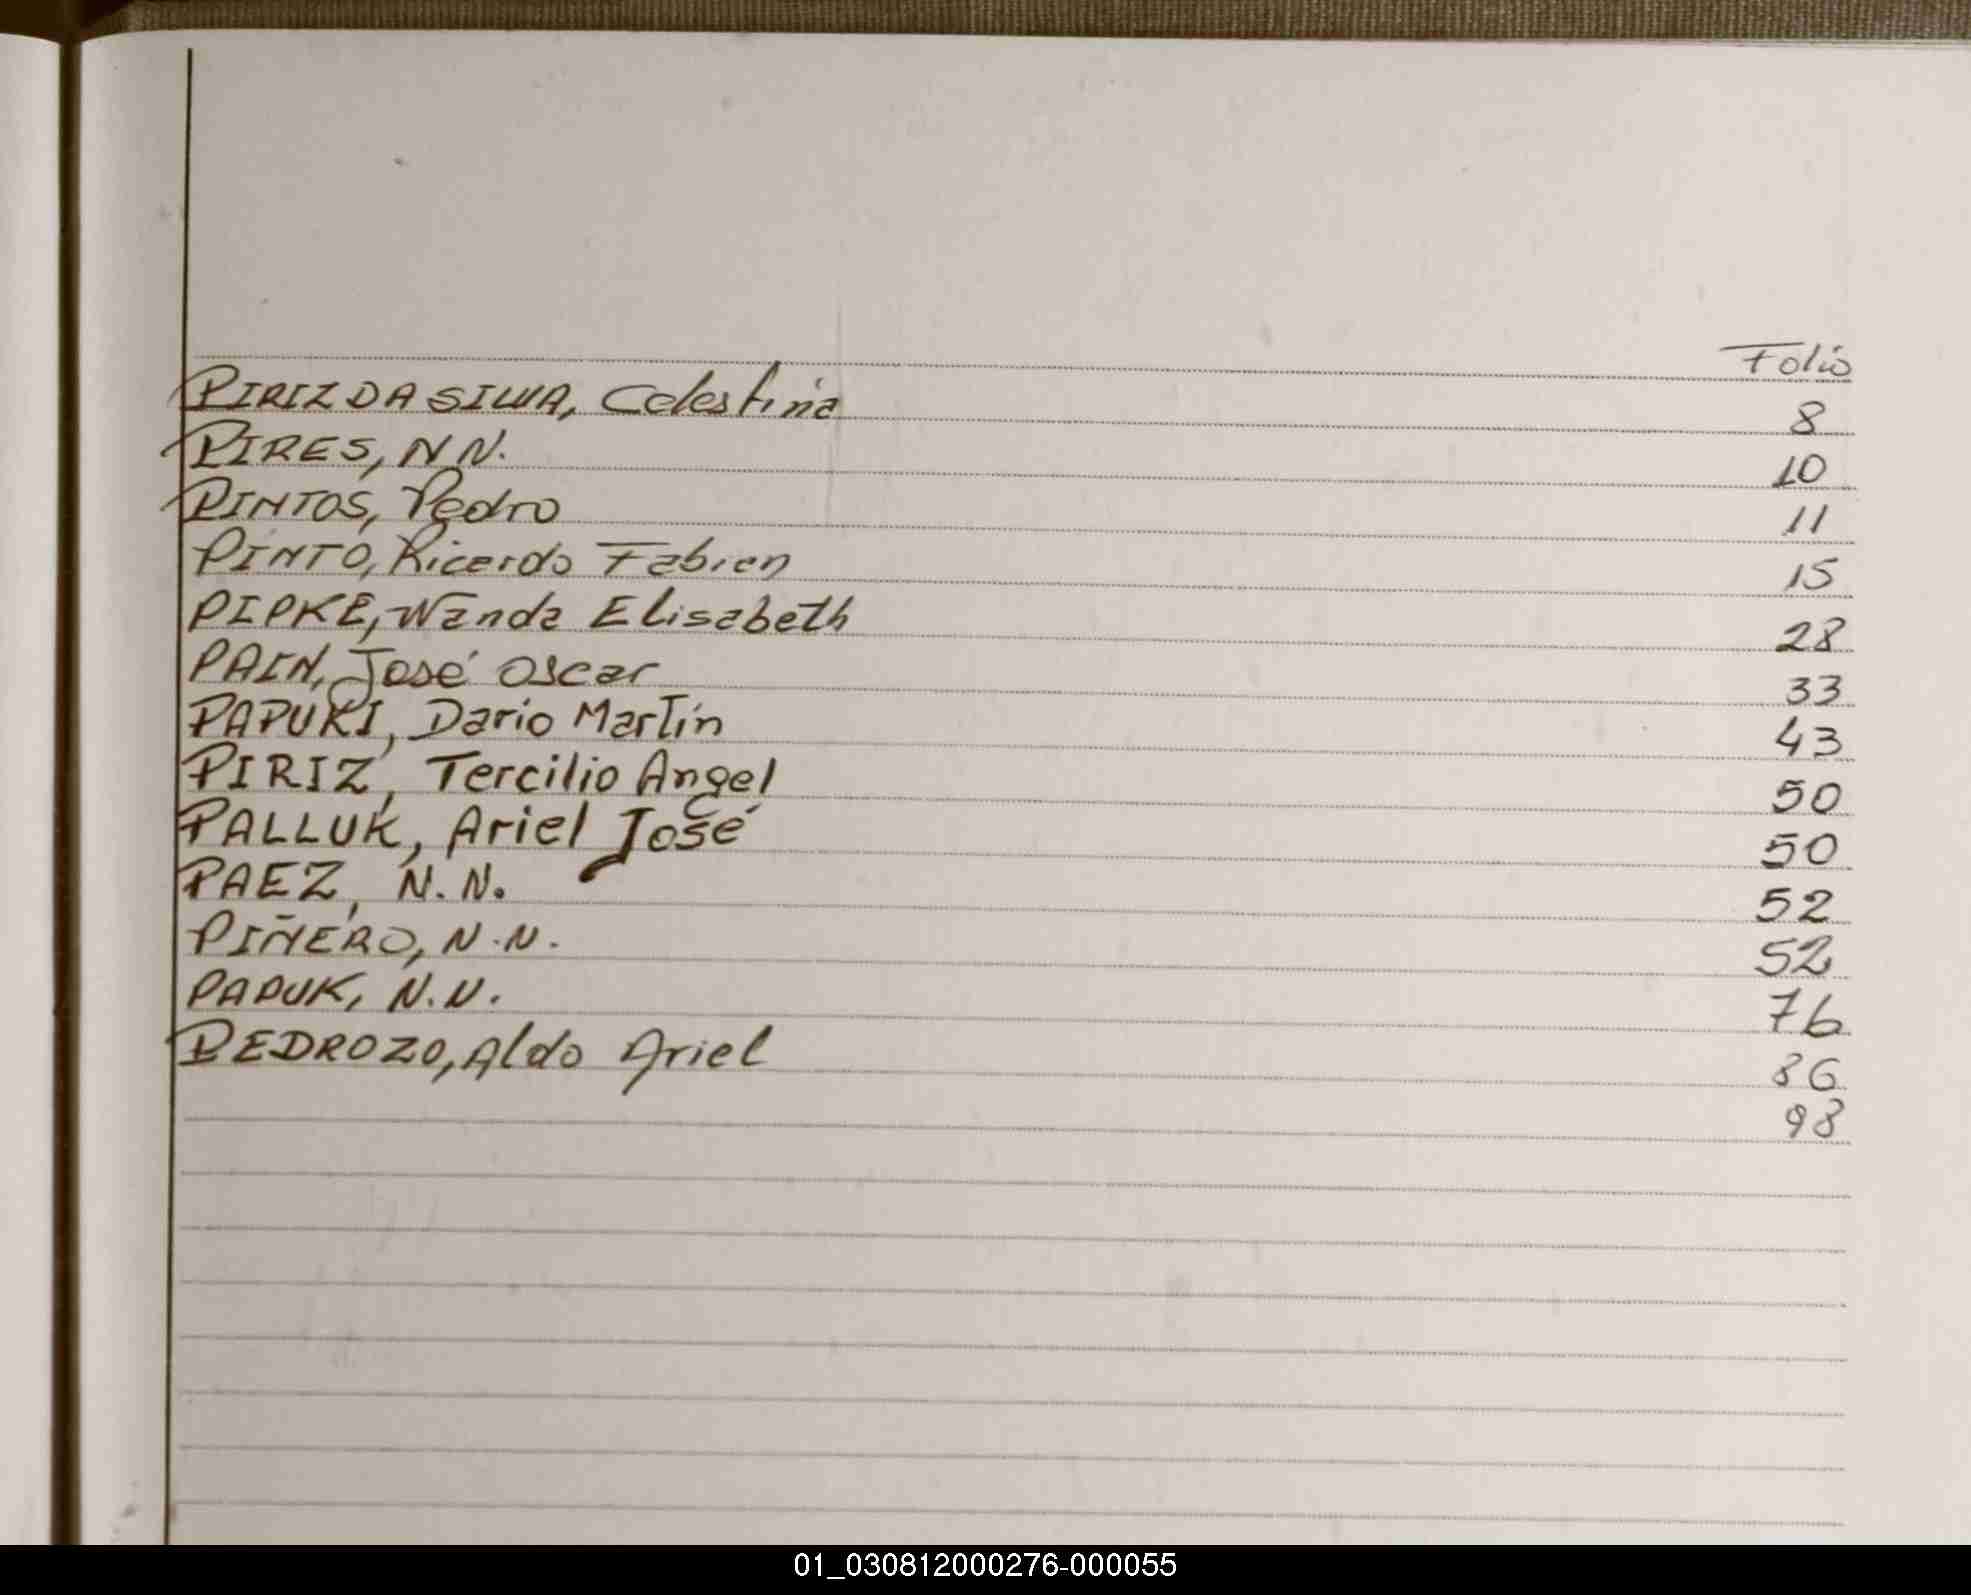 Folio
PIRIZ DA SILVA, Celestina 8
PIRES, N N. 10
PINTOS, Pedro 11
PINTO, Ricardo Fabian 15
PIPKE, Wanda Elisabeth 28
PAIN, José Oscar 33
PAPUKI, Dario Martín 43
PIRIZ, Tercilio Angel 50
PALLUK, Ariel José 50
PAEZ, N.N. 52
PIÑERO, N.N. 52
PAPUK, N.N. 76
PEDROZO, Aldo Ariel 86
98
01_030812000276-000055